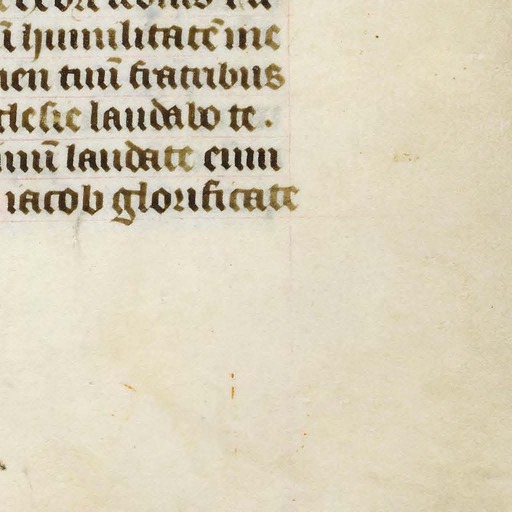 humilitatē me
men tuū fratribus
clesie laudabo te.
inuū laudate eum
iacob glorificate